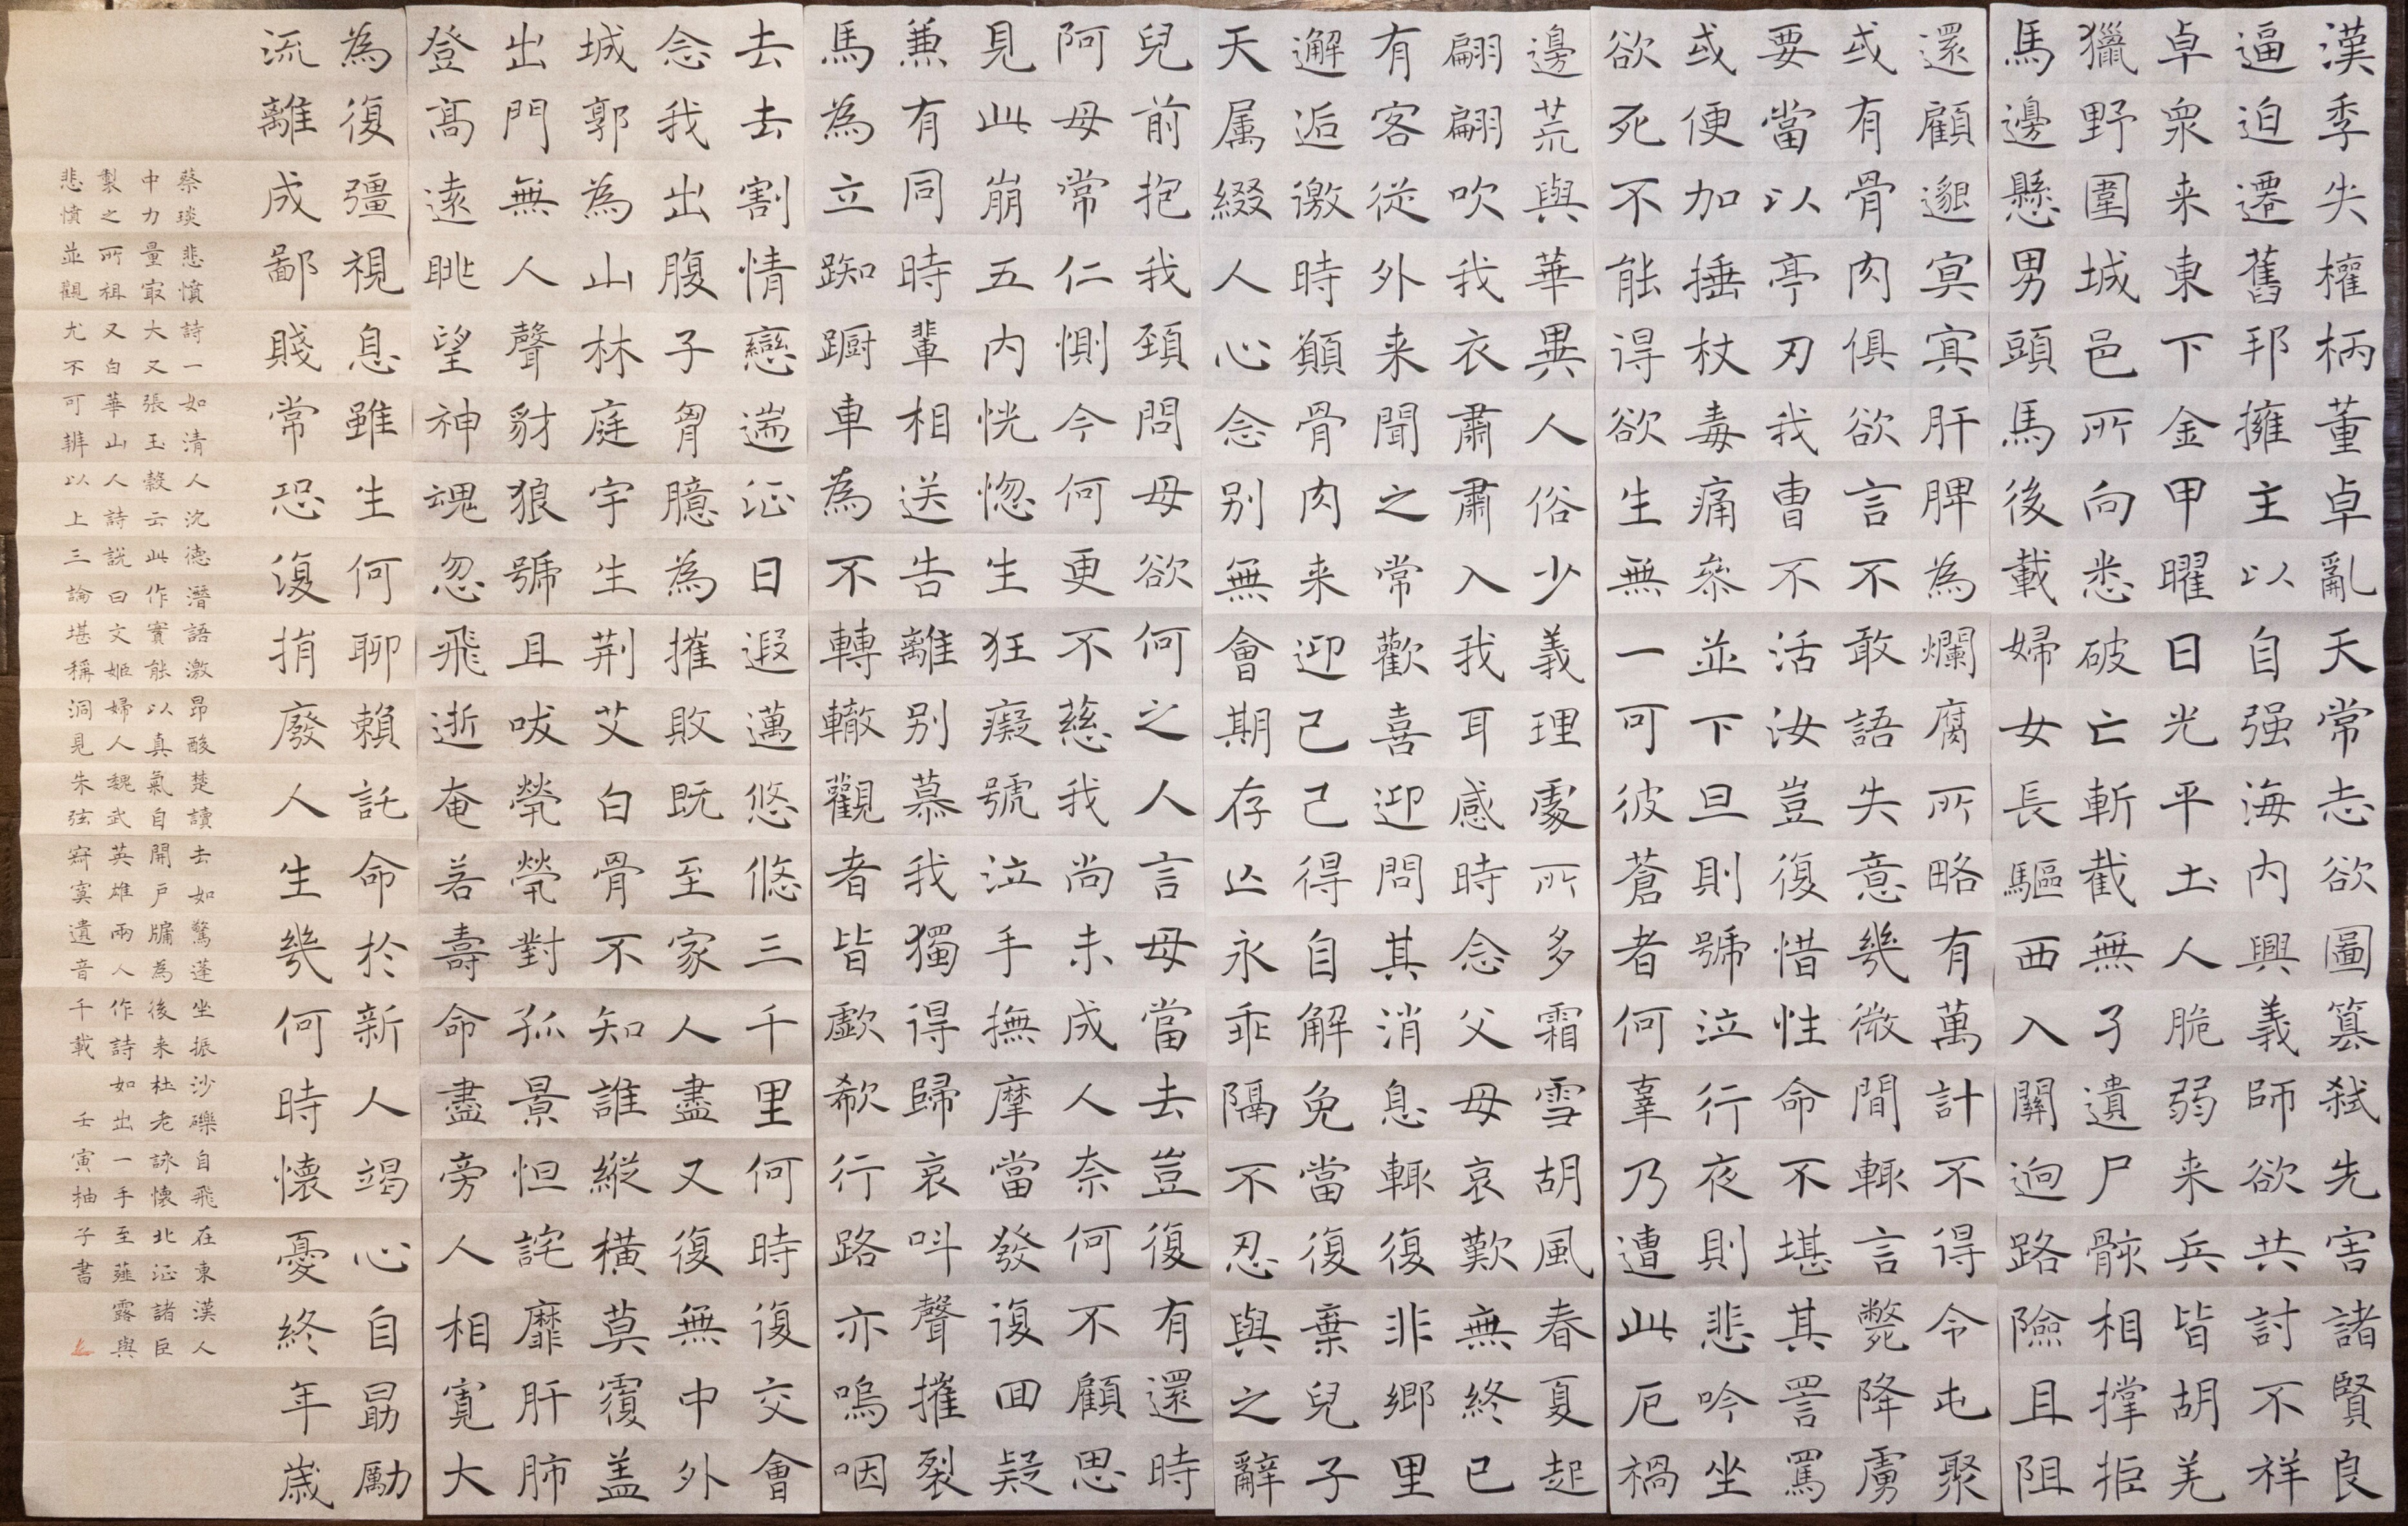 漢季失權柄董卓亂天常志欲圖篡弑先害諸賢良
逼迫遷舊邦擁主以自强海内興義師欲共討不祥
卓衆来東下金甲曜日光平土人脆弱来兵皆胡羌
獵野圍城邑所向悉破亡斬截無孑遺尸骸相撑拒
馬邊懸男頭馬後載婦女長驅西入關迥路險且阻
還顧邈冥冥肝脾為爛腐所略有萬計不得令屯聚
或有骨肉俱欲言不敢語失意幾微間輒言斃降虜
要當以亭刃我曹不活汝豈復惜性命不堪其詈罵
或便加捶杖毒痛参並下旦則號泣行夜則悲吟坐
欲死不能得欲生無一可彼蒼者何辜乃遭此厄禍
邊荒與華異人俗少義理處所多霜雪胡風春夏起
翩翩吹我衣肅肅入我耳感時念父母哀歎無終已
有客從外来聞之常歡喜迎問其消息輒復非鄉里
邂逅徼時願骨肉来迎己己得自解免當復棄兒子
天属綴人心念别無會期存亡永乖隔不忍與之辭
兒前抱我頸問母欲何之人言母當去豈復有還時
阿母常仁惻今何更不慈我尚未成人奈何不顧思
見此崩五内恍惚生狂癡號泣手撫摩當發復回疑
兼有同時輩相送告離别慕我獨得歸哀叫聲摧裂
馬為立踟蹰車為不轉轍觀者皆歔欷行路亦嗚咽
去去割情戀遄征日遐邁悠悠三千里何時復交會
念我出腹子胷臆為摧敗既至家人盡又復無中外
城郭為山林庭宇生荆艾白骨不知誰縱横莫覆盖
出門無人聲豺狼號且吠煢煢對孤景怛詫靡肝肺
登高遠眺望神魂忽飛逝奄若壽命盡旁人相寬大
為復彊視息雖生何聊賴託命於新人竭心自勗勵
流離成鄙賤常恐復捐廢人生幾何時懷憂終年歲
蔡琰悲憤詩一如清人沈德潛語激昂酸楚讀去如驚蓬坐振沙礫自飛在東漢人
中力量最大又張玉穀云此作實能以真氣自開戶牖為後来杜老詠懷北征諸巨
製之所祖又白華山人詩說曰文姬婦人魏武英雄兩人作詩如出一手至薤露與
悲憤並觀尤不可辨以上三論堪稱洞見朱弦寂寞遺音千載壬寅柚子書